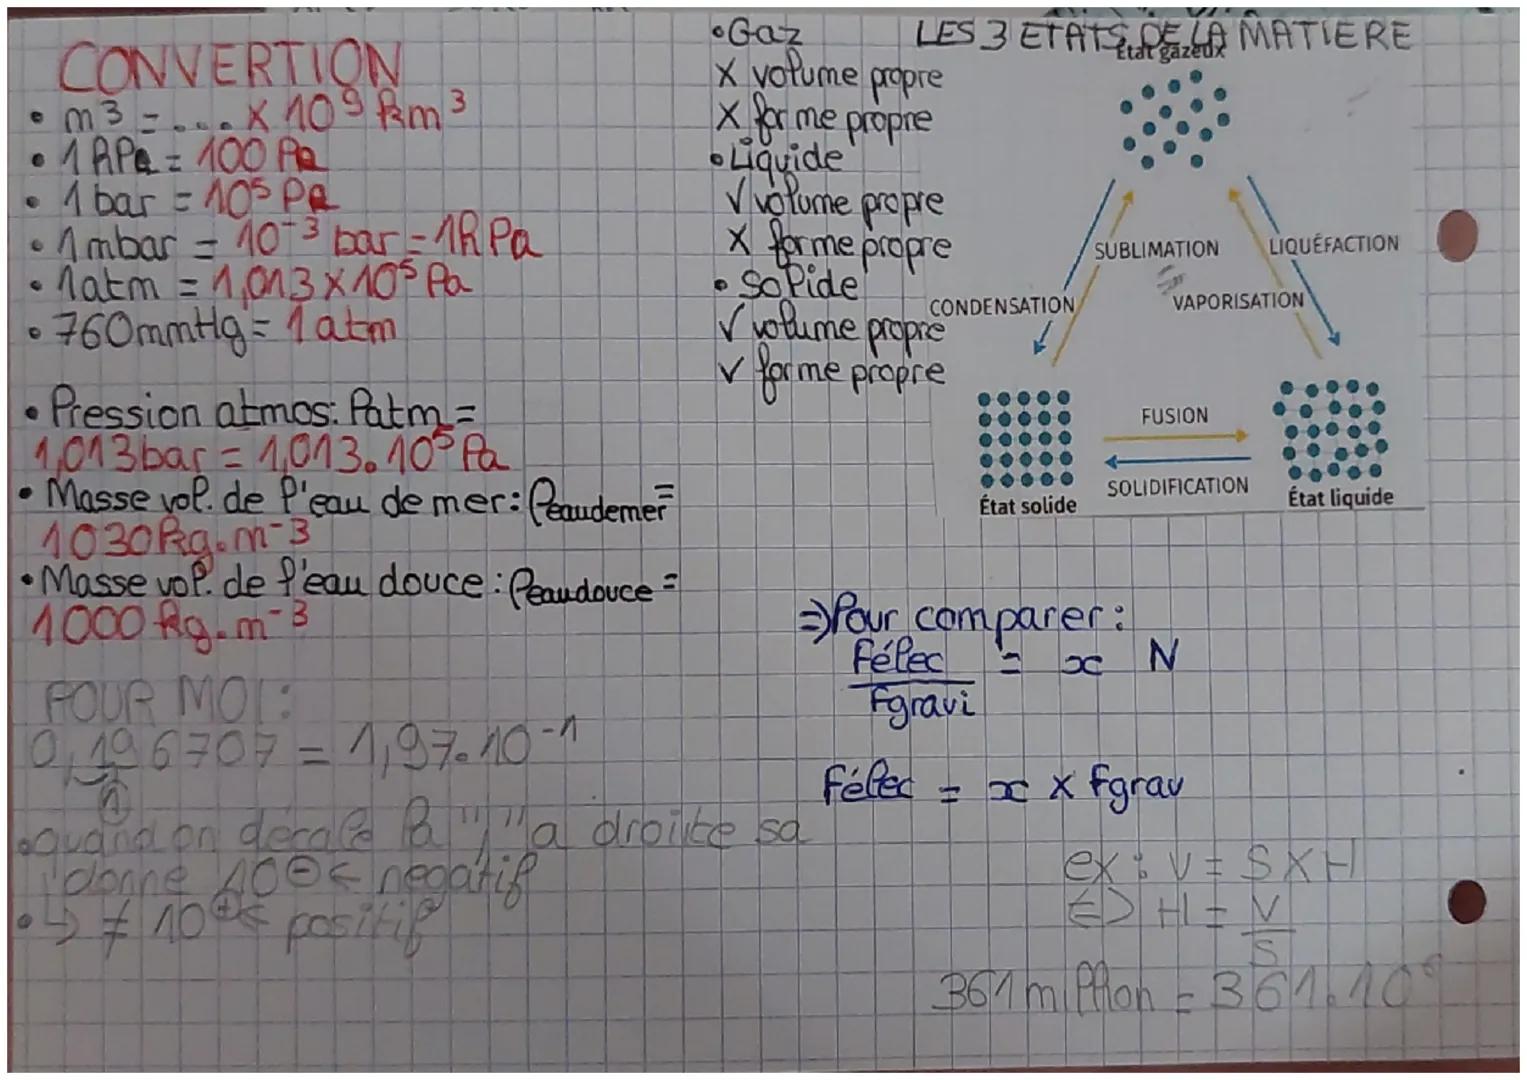 CONVERTION
• m3 = .... x 10⁹ km³
• 1 hPa = 100 Pa
• 1 bar = 10⁵ Pa
• 1 mbar = 10⁻³ bar = 1hPa
• 1atm = 1,013 x 10⁵ Pa
• 760mmHg = 1 atm
• Pression atmos: Patm =
1,013bar = 1,013.10⁵ Pa
• Masse vol. de l'eau de mer: ρeaudemer =
1030kg.m⁻³
• Masse vol. de l'eau douce: ρeaudouce =
1000 kg.m⁻³
POUR MOI:
0,196707 = 1,97.10⁻¹
1
• quand on décale la "," a droite sa
donne 10⊖ ← negatif
• ↳ ≠ 10⊕ ← positif
• Gaz
X volume propre
X forme propre
• Liquide
√ volume propre
X forme propre
• Solide
√ volume propre
√ forme propre
LES 3 ETATS DE LA MATIERE
État gazeux
SUBLIMATION
LIQUÉFACTION
CONDENSATION
VAPORISATION
FUSION
SOLIDIFICATION
État solide
État liquide
⇒ Pour comparer:
Félec = x N
Fgravi
Félec = x x Fgrav
ex: V = S X H
⇔ H = V
S
361 million = 361.10⁶